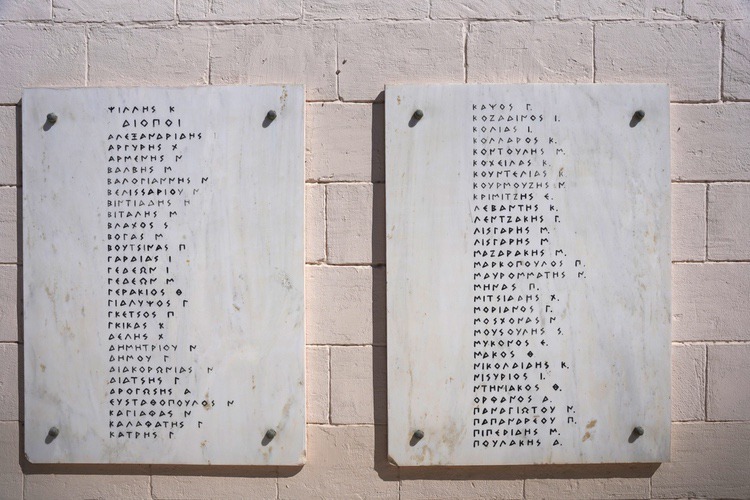 ΨΙΛΛΗΣ Κ
ΔΙΟΠΟΙ
ΑΛΕΞΑΝΔΡΙΔΗΣ
ΑΡΓΥΡΗΣ Χ
ΑΡΜΕΝΗΣ Ν
ΒΑΛΒΗΣ Μ
ΒΑΛΟΓΙΑΝΝΗΣ Ν
ΒΕΛΙΣΣΑΡΙΟΥ Ν
ΒΙΝΤΙΑΔΗΣ Η
ΒΙΤΑΛΗΣ Μ
ΒΛΑΧΟΣ Σ
ΒΟΓΑΣ Μ
ΒΟΥΤΣΙΝΑΣ Π
ΓΑΡΔΙΑΣ Ι
ΓΕΔΕΩΝ Ι
ΓΕΔΕΩΝ Μ
ΓΕΡΑΚΙΟΣ Θ
ΓΙΑΛΥΨΟΣ Γ
ΓΚΕΤΣΟΣ Π
ΓΚΙΚΑΣ Κ
ΔΕΛΗΣ Χ
ΔΗΜΗΤΡΙΟΥ Ν
ΔΗΜΟΥ Γ
ΔΙΑΚΟΡΩΝΙΑΣ Ν
ΔΙΑΤΣΗΣ Γ
ΔΡΟΓΩΣΗΣ Α
ΕΥΣΤΑΘΟΠΟΥΛΟΣ Ν
ΚΑΓΙΑΦΑΣ Ν
ΚΑΛΑΦΑΤΗΣ Γ
ΚΑΤΡΗΣ Γ
ΚΑΨΟΣ Γ.
ΚΟΖΑΔΙΝΟΣ Ι.
ΚΟΛΙΑΣ Ι.
ΚΟΛΛΑΡΟΣ Κ.
ΚΟΝΤΟΥΛΗΣ Μ.
ΚΟΧΕΙΛΑΣ Κ.
ΚΟΥΝΤΕΛΙΑΣ Κ
ΚΟΥΡΜΟΥΖΗΣ Μ
ΚΡΙΜΙΤΖΗΣ Ε.
ΛΕΒΑΝΤΗΣ Κ.
ΛΕΝΤΖΑΚΗΣ Γ.
ΛΙΣΓΑΡΗΣ Μ.
ΛΙΣΓΑΡΗΣ Μ
ΜΑΖΑΡΑΚΗΣ Μ.
ΜΑΡΚΟΠΟΥΛΟΣ Π.
ΜΑΥΡΟΜΜΑΤΗΣ Ν.
ΜΗΝΑΣ Π.
ΜΙΤΣΙΑΔΗΣ Χ.
ΜΟΡΙΑΝΟΣ Γ.
ΜΟΣΧΟΝΑΣ Ν
ΜΟΥΣΟΥΛΗΣ Σ.
ΜΥΚΟΝΟΣ Ε.
ΜΑΚΟΣ Θ.
ΝΙΚΟΛΑΙΔΗΣ Κ.
ΝΙΣΥΡΙΟΣ Ι.
ΝΤΗΝΙΑΚΟΣ Θ.
ΟΡΦΑΝΟΣ Δ.
ΠΑΝΑΓΙΩΤΟΥ Ν.
ΠΑΠΑΝΔΡΕΟΥ Π.
ΠΙΠΕΡΙΔΗΣ Μ.
ΠΟΥΛΑΚΗΣ Δ.